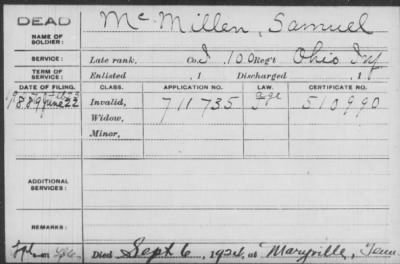 DEAD
NAME OF SOLDIER:
McMillen, Samuel
SERVICE:
Late rank, Co. I, 100 Reg't Ohio Inf
TERM OF SERVICE:
Enlisted , 1 Discharged , 1
DATE OF FILING. CLASS. APPLICATION NO. LAW. CERTIFICATE NO.
1889 June 22 Invalid, 711735 510990
Widow,
Minor,
ADDITIONAL SERVICES:
REMARKS:
Died Sept 6, 1924, at Maryville, Tenn